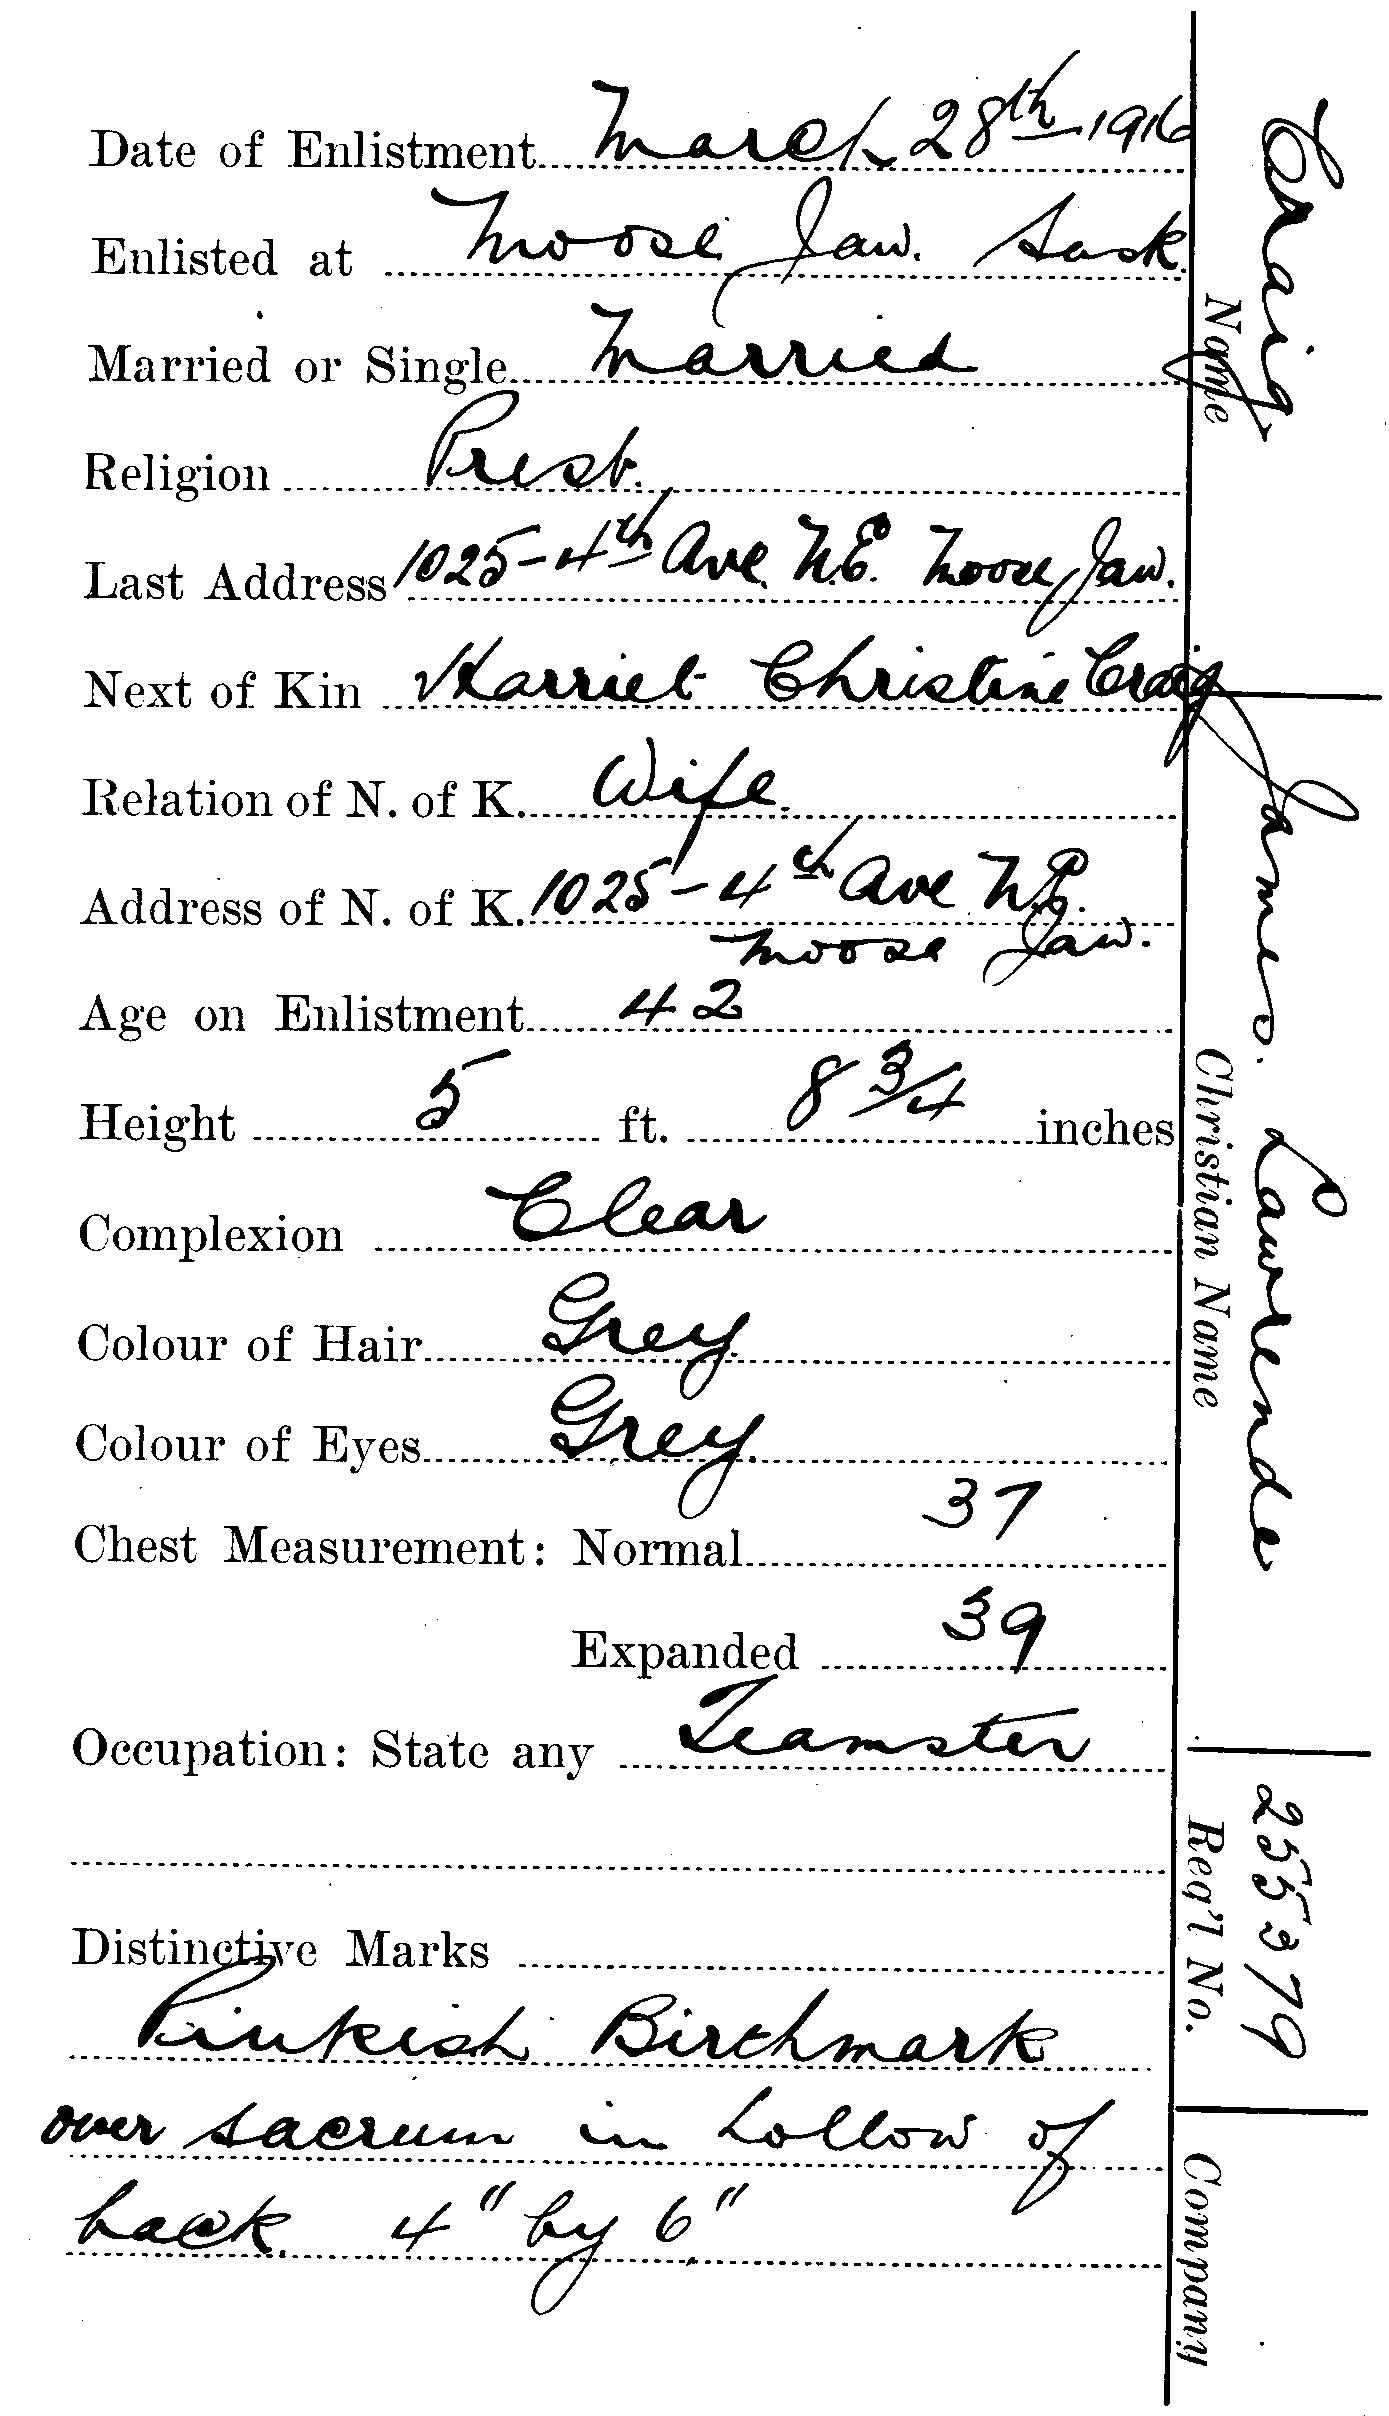 Date of Enlistment March 28th 1916
Enlisted at Moose Jaw. Sask.
Married or Single Married
Religion Presb.
Last Address 1025-4th Ave. N.E. Moose Jaw.
Next of Kin Harriet Christine Craig
Relation of N. of K. Wife.
Address of N. of K. 1025-4th Ave N.E.
Moose Jaw.
Age on Enlistment 42
Height 5 ft. 8 3/4 inches
Complexion Clear
Colour of Hair Grey
Colour of Eyes Grey.
Chest Measurement: Normal 37
Expanded 39
Occupation: State any Teamster
Distinctive Marks
Pinkish Birthmark
over sacrum in hollow of
back. 4" by 6"
Craig
Name
James. Lawrence
Christian Name
255379
Reg'l No.
Company